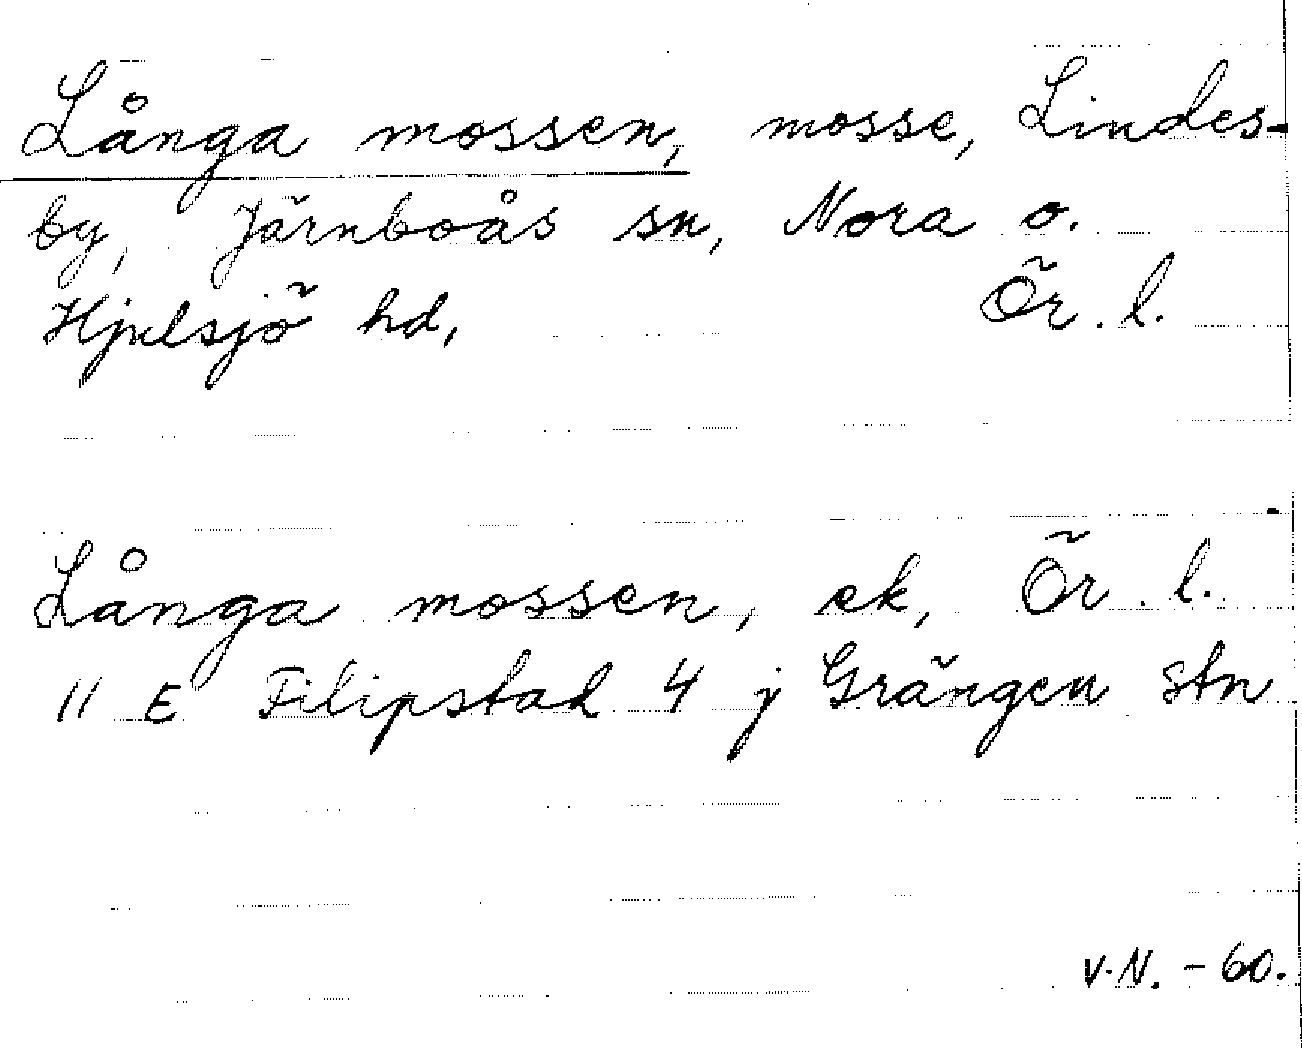 Långa mossen, mosse, Lindes-
by, Järnboås sn, Nora o.
Hjulsjö hd, Ör. l.
Långa mossen, ek, Ör. l.
11 E Filipstad 4 j Grängen stn
V.N. - 60.